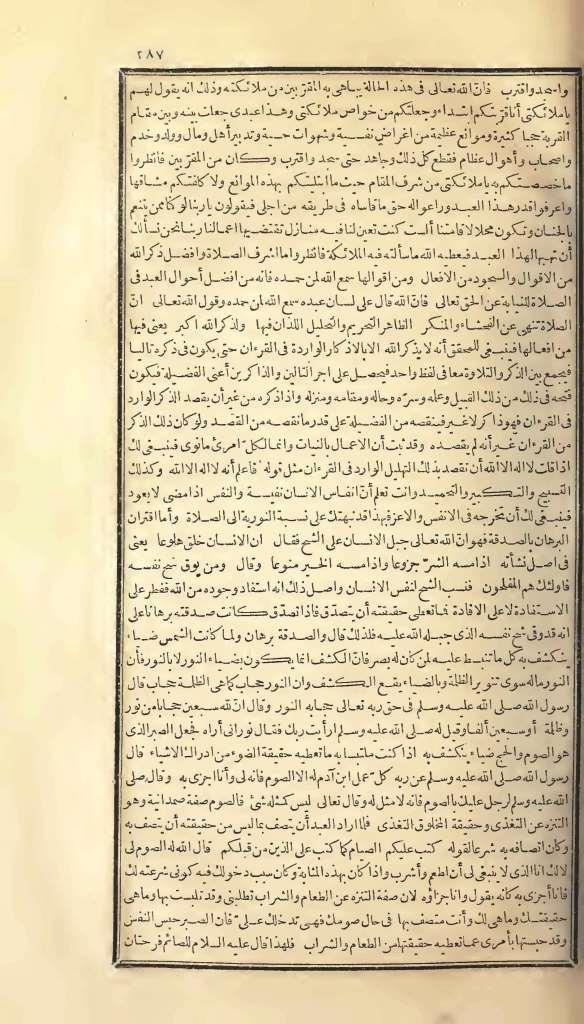 ٢٨٧
واسجد واقترب فان الله تعالى فى هذه الحالة يباهى به المقربين من ملائكته وذلك انه يقول لهم
يا ملائكتى أنا قربتكم ابتداء وجعلتكم من خواص ملائكتى وهذا عبدى جعلت بينه وبين مقام
القربة حجبا كثيرة وموانع عظيمة من اغراض نفسية وشهوات حسية وتدبير أهل ومال وولد وخدم
واصحاب وأهوال عظام فقطع كل ذلك وجاهد حتى سجد واقترب وكان من المقربين فانظروا
ما خصصتكم به يا ملائكتى من شرف المقام حيث ما ابتليتكم بهذه الموانع ولا كلفتكم مشاقها
واعرفوا قدر هذا العبد وراعوا له حق ما قاساه فى طريقه من اجلى فيقولون يا ربنا لو كنا ممن يتنعم
بالجنان وتكون محلا لاقامتنا ألست كنت تعين لنا فيه منازل تقتضيها اعمالنا ربنا نحن نسألك
أن تهبها لهذا العبد فيعطيه الله ما سألته فيه الملائكة فانظروا ما اشرف الصلاة وافضل ذكر الله
من الاقوال والسجود من الافعال ومن اقوالها سمع الله لمن حمده فانه من افضل أحوال العبد فى
الصلاة للنيابة عن الحق تعالى فان الله قال على لسان عبده سمع الله لمن حمده وقول الله تعالى ان
الصلاة تنهى عن الفحشاء والمنكر الظاهر التحريم والتحليل اللذان فيها ولذكر الله اكبر يعنى فيها
من افعالها فينبغى للمحقق أنه لا يذكر الله الا بالاذكار الواردة فى القرءان حتى يكون فى ذكره تاليا
فيجمع بين الذكر والتلاوة معا فى لفظ واحد فيحصل على اجر التالين والذاكرين أعنى الفضيلة فيكون
فتحه فى ذلك من ذلك القبيل وعلمه وسره وحاله ومقامه ومنزله واذا ذكره من غير أن يقصد الذكر الوارد
فى القرءان فهو ذاكر لا غير فينقصه من الفضيلة على قدر ما نقصه من القصد ولو كان ذلك الذكر
من القرءان غير أنه لم يقصده وقد ثبت أن الاعمال بالنيات وانما لكل امرئ ما نوى فينبغى لك
اذا قلت لا اله الا الله أن تقصد بذلك التهليل الوارد فى القرءان مثل قوله فاعلم أنه لا اله الا الله وكذلك
التسبيح والتكبير والتحميد وانت تعلم أن انفاس الانسان نفيسة والنفس اذا مضى لا يعود
فينبغى لك أن تخرجه فى الانفس والاعز فبهذا قد نبهتك على نسبة النورية الى الصلاة وأما اقتران
البرهان بالصدقة فهو ان الله تعالى جبل الانسان على الشح فقال ان الانسان خلق هلوعا يعنى
فى اصل نشأته اذا مسه الشر جزوعا واذا مسه الخير منوعا وقال ومن يوق شح نفسه
فاولئك هم المفلحون فنسب الشح لنفس الانسان واصل ذلك انه استفاد وجوده من الله ففطر على
الاستفادة لا على الافادة فما تعطى حقيقته أن يتصدق فاذا تصدق كانت صدقته برهانا على
انه قد وقى شح نفسه الذى جبله الله عليه فلذلك قال والصدقة برهان ولما كانت الشمس ضياء
ينكشف به كل ما تنبسط عليه لمن كان له بصر فان الكشف انما يكون بضياء النور لا بالنور فأن
النور ماله سوى تنوير الظلمة وبالضياء يقع الكشف وان النور حجاب كما هى الظلمة حجاب قال
رسول الله صلى الله عليه وسلم فى حق ربه تعالى حجابه النور وقال ان لله سبعين حجابا من نور
وظلمة أو سبعين ألفا وقيل له صلى الله عليه وسلم ارأيت ربك فقال نورانى أراه فجعل الصبر الذى
هو الصوم والحج ضياء ينكشف به اذا كنت ملتبسا به ما تعطيه حقيقة الضوء من ادراك الاشياء قال
رسول الله صلى الله عليه وسلم عن ربه كل عمل ابن آدم له الا الصوم فانه لى وأنا اجزى به وقال صلى
الله عليه وسلم لرجل عليك بالصوم فانه لا مثل له وقال تعالى ليس كمثله شئ فالصوم صفة صمدانية وهو
التنزه عن التغذى وحقيقة المخلوق التغذى فلما اراد العبد أن يتصف بما ليس من حقيقته أن يتصف به
وكان اتصافه به شرعا لقوله كتب عليكم الصيام كما كتب على الذين من قبلكم قال الله له الصوم لى
لا لك انا الذى لا ينبغى لى أن اطعم وأشرب واذا كان بهذه المثابة وكان سبب دخولك فيه كونى شرعته لك
فانا أجزى به كانه يقول وانا جزاؤه لان صفة التنزه عن الطعام والشراب تطلبنى وقد تلبست بها وما هى
حقيقتك وما هى لك وأنت متصف بها فى حال صومك فهى تدخلك علىّ فان الصبر حبس النفس
وقد حبستها بأمرى عما تعطيه حقيقتها من الطعام والشراب فلهذا قال عليه السلام للصائم فرحتان